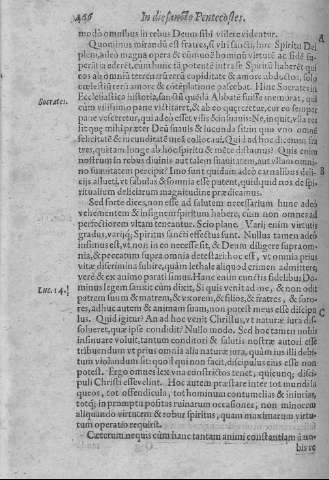 466 In die sancto Pentecostes.
modò omnibus in rebus Deum sibi videre videntur. A
Quominus mirandũ est fratres, si viri sancti, hoc Spiritu Dei
pleni, adeò magna opera & cũmunẽ hominũ virtutẽ ac fidẽ su-
eos ab omni terrenarũ rerũ cupiditate & amore abductos, solo
cœlestiũ rerũ amore & cõtẽplatione pascebat. Hinc Socrates in
Socrates. Ecclesiastica historia, sanctũ quẽdã Abbatẽ fuisse memorat, qui
cum pane solo victitaret, & ab eo quæreretur, cur eo semper
pane vesceretur, qui adeò esset vilis & insuauis: Ne, inquit,
felicitatẽ & iucunditatẽ meã collocaui. Quid ad hoc dicemus fra
tres, qui tam longe ab hoc spiritu & mẽte distamus? Quis enim
nostrum in rebus diuinis aut talem suauitatem, aut vllam omni-
no suauitatem percipit? Imo sunt quidam adeò carnalibus deli- B
cijs assueti, vt fabulas & somnia esse putent, quidquid nos de spi-
ritualium deliciarum magnitudine prædicamus.
Sed forte dices, non esse ad salutem necessarium hunc adeò
vehementem & insignem spiritum habere, cum non omnes ad
perfectiorem vitam teneantur. Scio plane. Varij enim virtutis
gradus, varijq; Spiritus sancti effectus sunt. Nullus tamen adeò
infimus est, vt non in eo necesse sit, & Deum diligere supra om-
nia, & peccatum supra omnia detestari: hoc est, vt omnia prius
vitæ discrimina subire, quàm lethale aliquod crimen admittere,
verè & ex animo parati simus. Hanc enim cunctis fidelibus Do-
Luc. 14. minus legem sanxit cùm dixit, Si quis venit ad me, & non odit
patrem suum & matrem, & vxorem, & filios, & fratres, & soro-
res, adhuc autem & animam suam, non potest meus esse discipu
lus. Quid igitur? An ad hoc venit Christus, vt naturæ iura dis- C
solueret, quæ ipse condidit? Nullo modo. Sed hoc tamen nobis
insinuare voluit, tantum conditori & salutis nostræ autori esse
tribuendum vt prius omnia alia naturæ iura, quàm ius illi debi-
tum violandum sit: quod qui non facit, discipulus eius esse non
potest. Ergo omnes lex vna constrictos tenet, quicunq; disci-
puli Christi esse velint. Hoc autem præstare inter tot mundi la
queos, tot offendicula, tot hominum contumelias & iniurias,
totq; in promptu positas ruinarum occasiones, non minorem
aliquando virtutem & robur spiritus, quam maximarum virtu-
tum operatio requirit.
Cæterum nequis cùm hanc tantam animi constantiam à no-
bis re